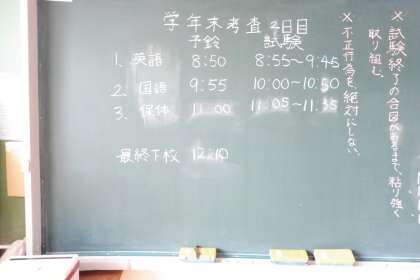 学年末考査2日目
予鈴 試験
1. 英語 8:50 8:55〜9:45
2. 国語 9:55 10:00〜10:50
3. 保体 11:00 11:05〜11:35
最終下校 12:10
×試験終了の合図があるまで、粘り強く
取り組む。
×不正行為を絶対にしない、